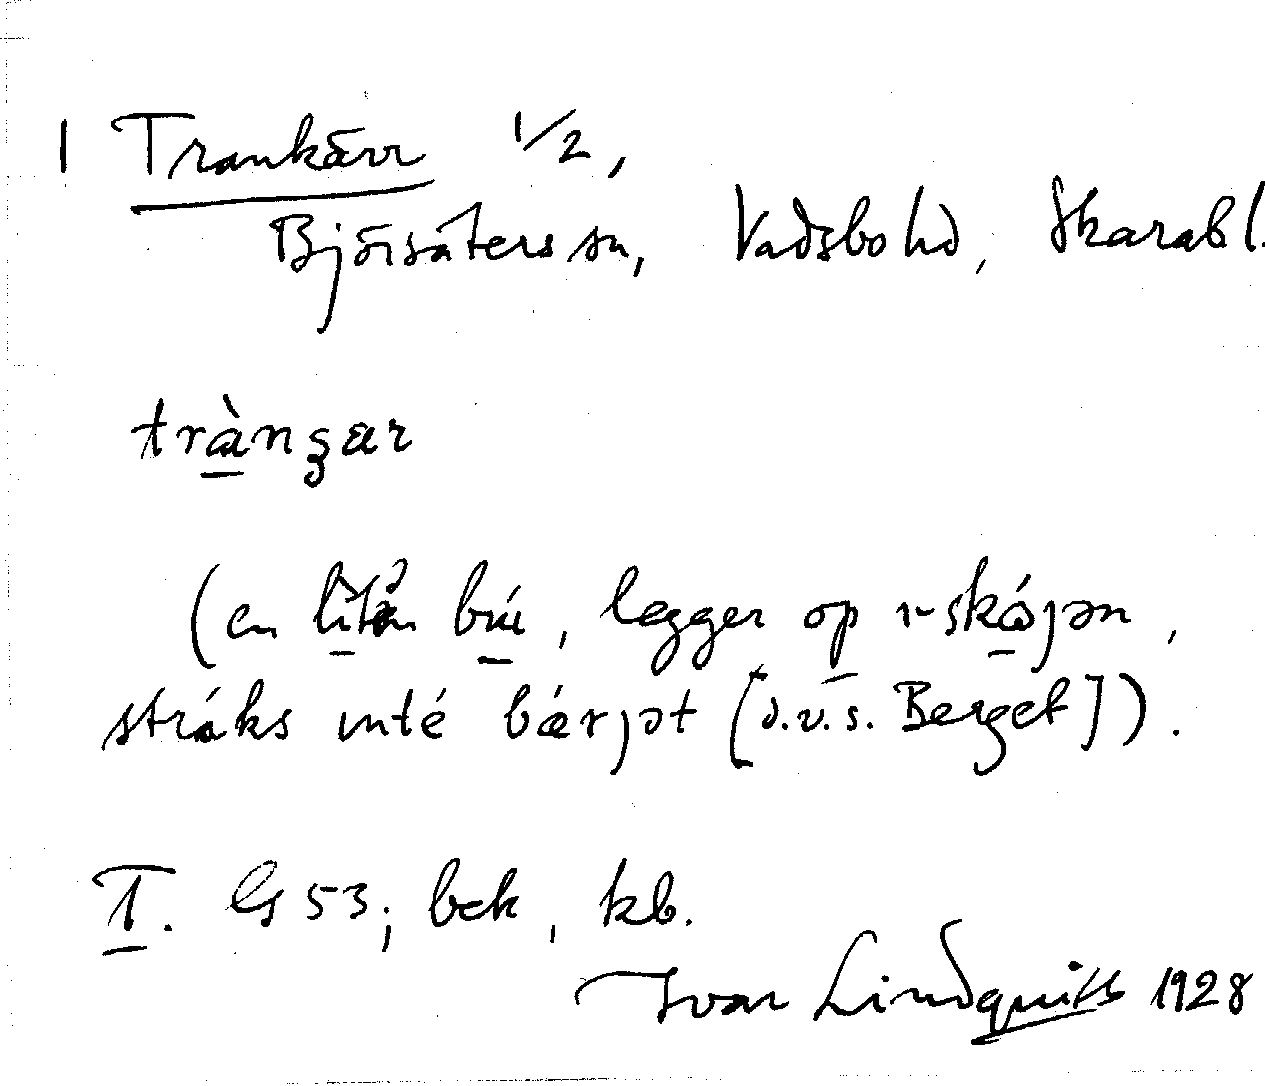 1 Trankärr 1/2,
Björsäters sn, Vadsbo hd, Skarabl.
trànʒær
(en lìtǝn bú, legger op ɪ skójǝn,
stráks ɪnté bǽrjǝt [d.v.s. Berget]).
I. G 53; bek, kb.
Ivar Lindquist 1928